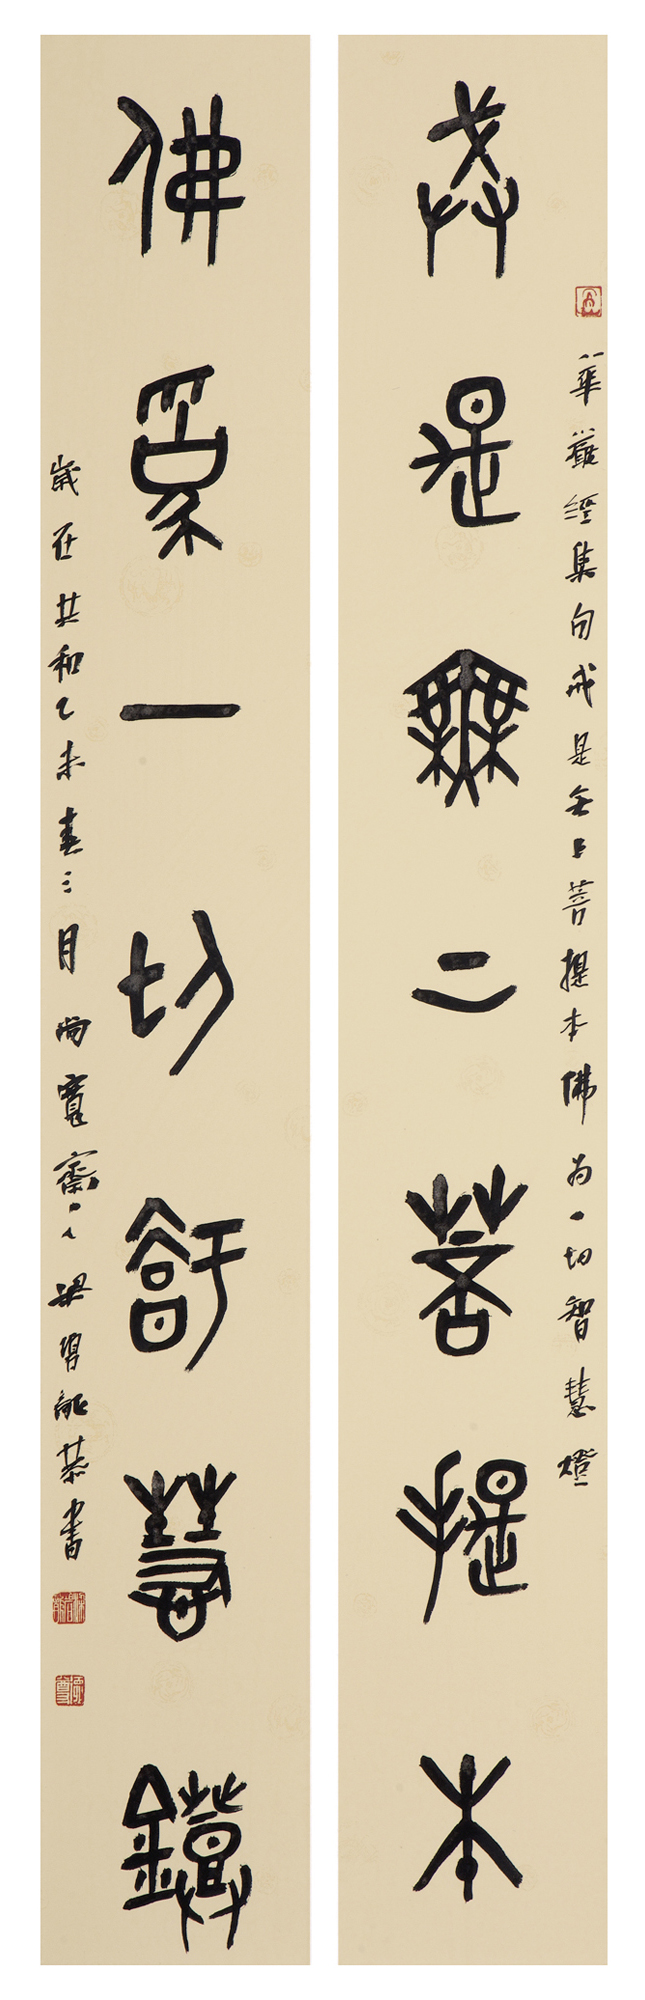 戒是無二菩提本
華嚴經集句戒是無上菩提本佛為一切智慧燈
佛為一切智慧鐙
歲在共和乙未春三月尚寬齋主人梁碧能恭書